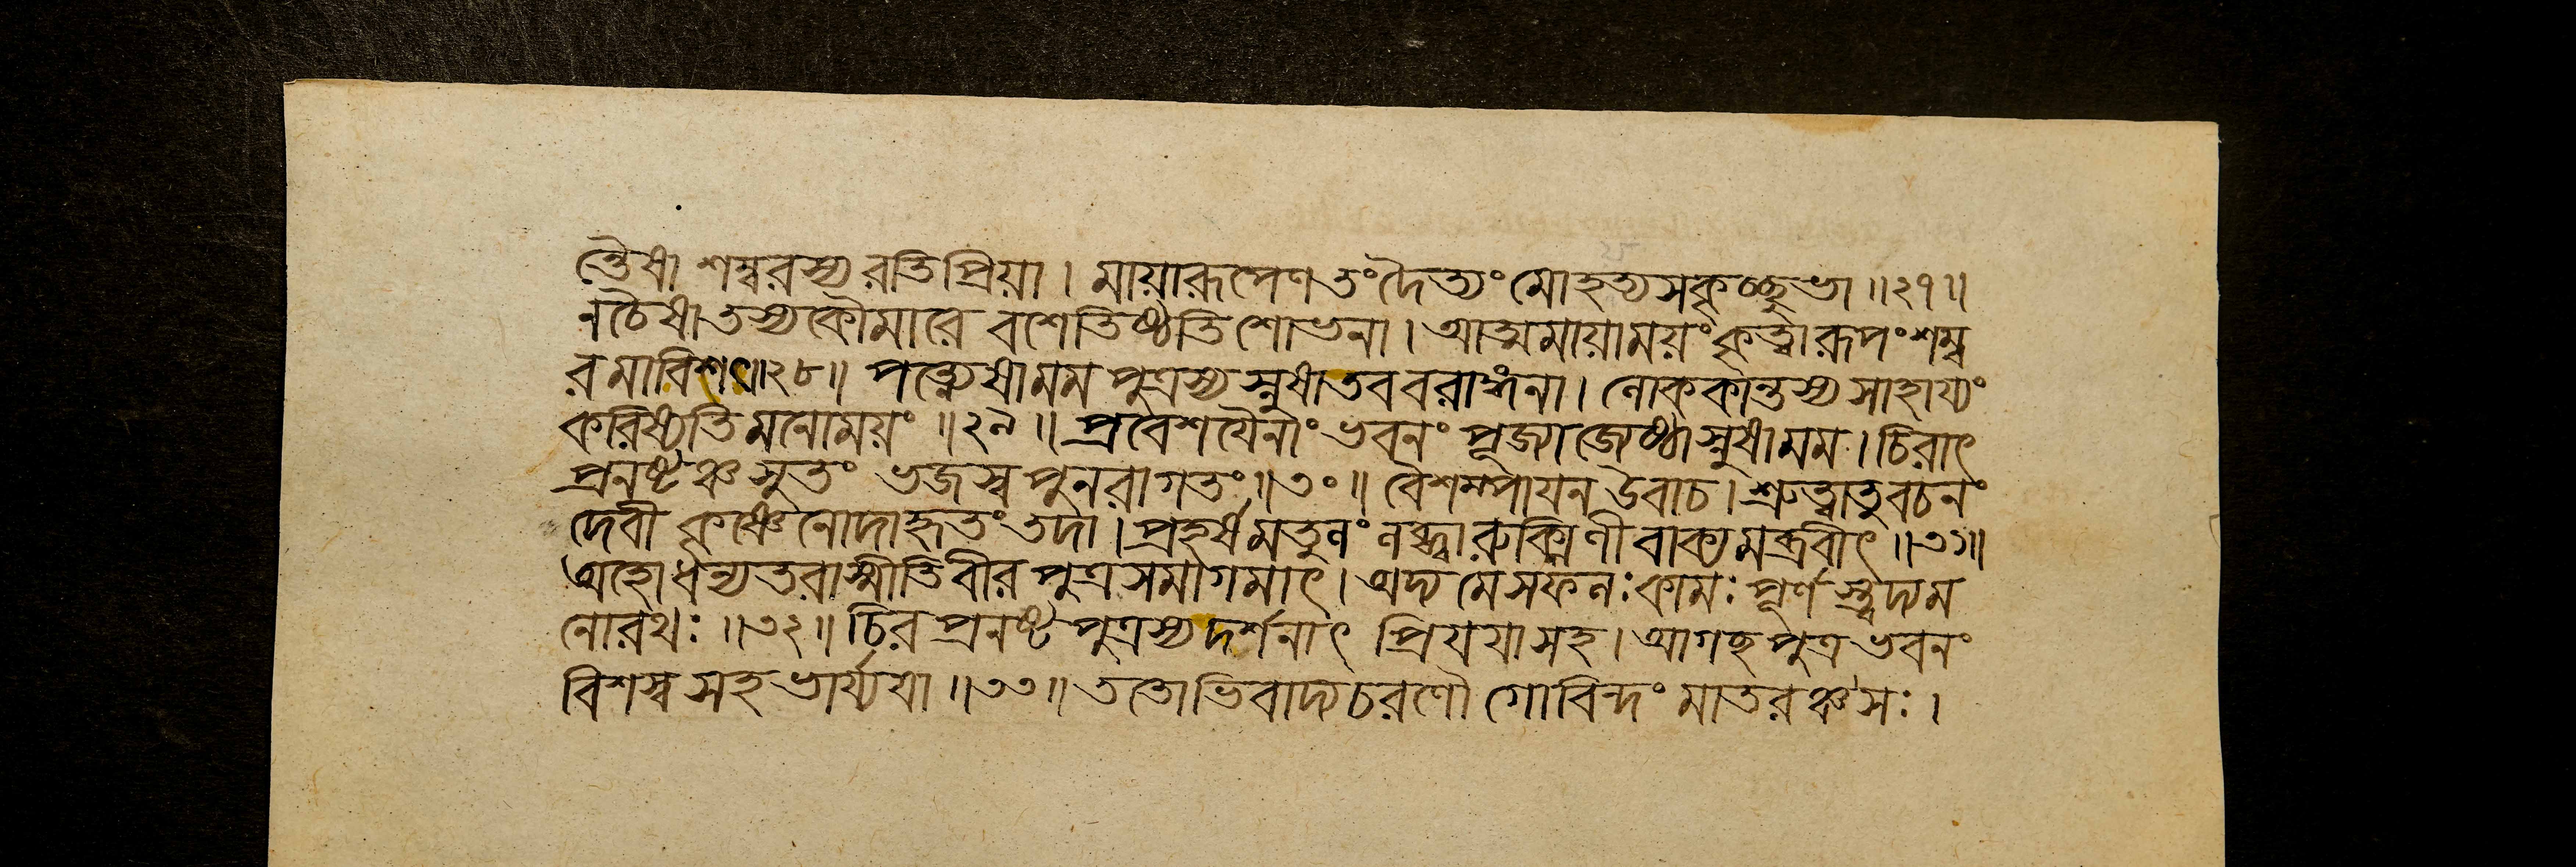 ত্তৈষা শম্বরস্য রতিপ্রিয়া । মায়ারূপেণ তং দৈত্যং মোহত্যসকৃচ্ছুভা ॥ ২৭ ॥
ন চৈষা তস্য কৌমারে বশে তিষ্ঠতি শোভনা । আত্মমায়াময়ং কৃত্বা রূপং শম্ব
রমাবিশৎ ॥ ২৮ ॥ পত্ন্যেষা মম পুত্রস্য স্নুষা তব বরাঙ্গনা । লোককান্তস্য সাহায্যং
করিষ্যতি মনোময়ং ॥ ২৯ ॥ প্রবেশয়ৈনাং ভবনং পূজ্যা জ্যেষ্ঠা স্নুষা মম । চিরাৎ
প্রনষ্টঞ্চ সুতং ভজস্ব পুনরাগতং ॥ ৩০ ॥ বৈশম্পায়ন উবাচ । শ্রুত্বা তু বচনং
দেবী কৃষ্ণেনোদাহৃতং তদা । প্রহর্ষমতুলং লব্ধ্বা রুক্মিণী বাক্যমব্রবীৎ ॥ ৩১ ॥
অহো ধন্যতরাস্মীতি বীর পুত্র সমাগমাৎ । অদ্য মে সফলঃ কামঃ পূর্ণস্ত্বদ্য ম
নোরথঃ ॥ ৩২ ॥ চির প্রনষ্ট পুত্রস্য দর্শনাৎ প্রিয়য়া সহ । আগচ্ছ পুত্র ভবনং
বিশস্ব সহ ভার্য্যয়া ॥ ৩৩ ॥ ততোভিবাদ্য চরণৌ গোবিন্দং মাতরঞ্চ সঃ ।